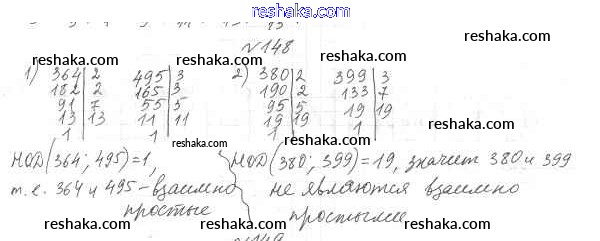 reshaka.com
№148
reshaka.com reshaka.com reshaka.com
1) 364 2 495 3 2) 380 2 399 3
182 2 165 3 190 2 133 7
91 7 55 5 95 5 19 19
13 13 11 11 19 19 1
1 1 1
reshaka.com reshaka.com
reshaka.com
НОД(364; 495)=1, НОД(380; 399)=19, значит 380 и 399
reshaka.com reshaka.com reshaka.com
т.е. 364 и 495 - взаимно не являются взаимно
простые простыми
reshaka.com reshaka.com reshaka.com
№149